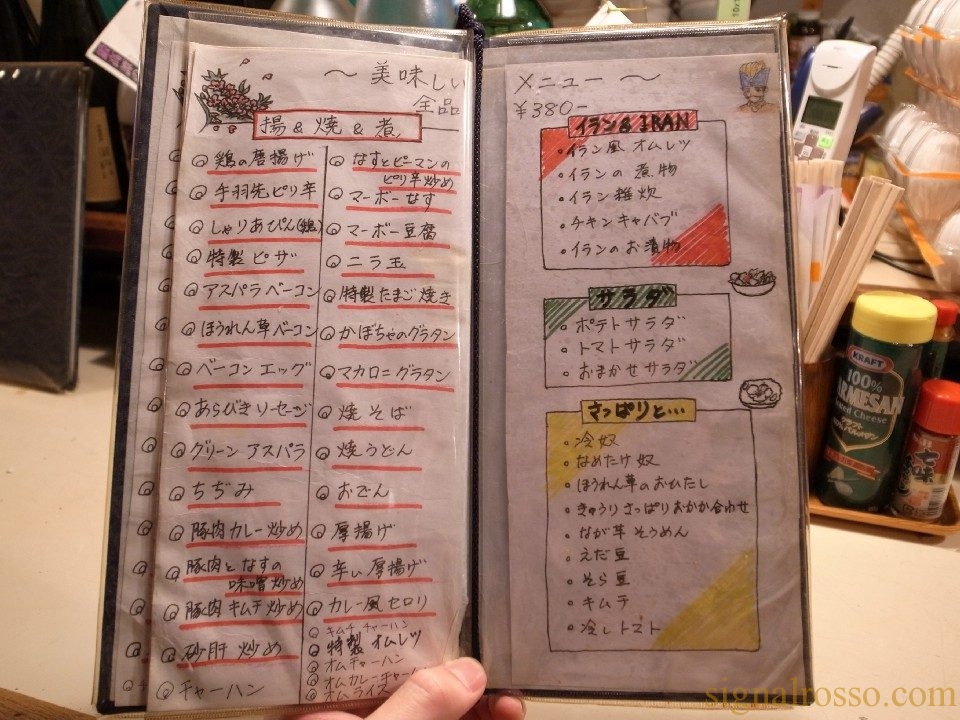 ～ 美味しい
全品
揚 & 焼 & 煮
鶏の唐揚げ
手羽先ピリ辛
しゃりあぴん(鶏)
特製 ピザ
アスパラ ベーコン
ほうれん草ベーコン
ベーコン エッグ
あらびきソーセージ
グリーン アスパラ
ちぢみ
豚肉カレー炒め
豚肉と なすの
味噌炒め
豚肉 キムチ 炒め
砂肝 炒め
チャーハン
なすとピーマンの
ピリ辛炒め
マーボーなす
マーボー豆腐
ニラ玉
特製たまご焼き
かぼちゃのグラタン
マカロニグラタン
焼そば
焼うどん
おでん
厚揚げ
辛い厚揚げ
カレー風セロリ
キムチ チャーハン
特製 オムレツ
オムチャーハン
オムカレーチャー
オムライス
メニュー ～
¥380-
イラン&IRAN
・イラン風 オムレツ
・イランの 煮物
・イラン雑炊
・チキンキャバブ
・イランのお漬物
サラダ
・ポテトサラダ
・トマトサラダ
・おまかせサラダ
さっぱりと…
・冷奴
・なめたけ奴
・ほうれん草のおひたし
・きゅうりさっぱりおかか合わせ
・なが芋 そうめん
・えだ豆
・そら豆
・キムチ
・冷しトマト
KRAFT
100%
PARMESAN
Cheese
七味
signalrosso.com